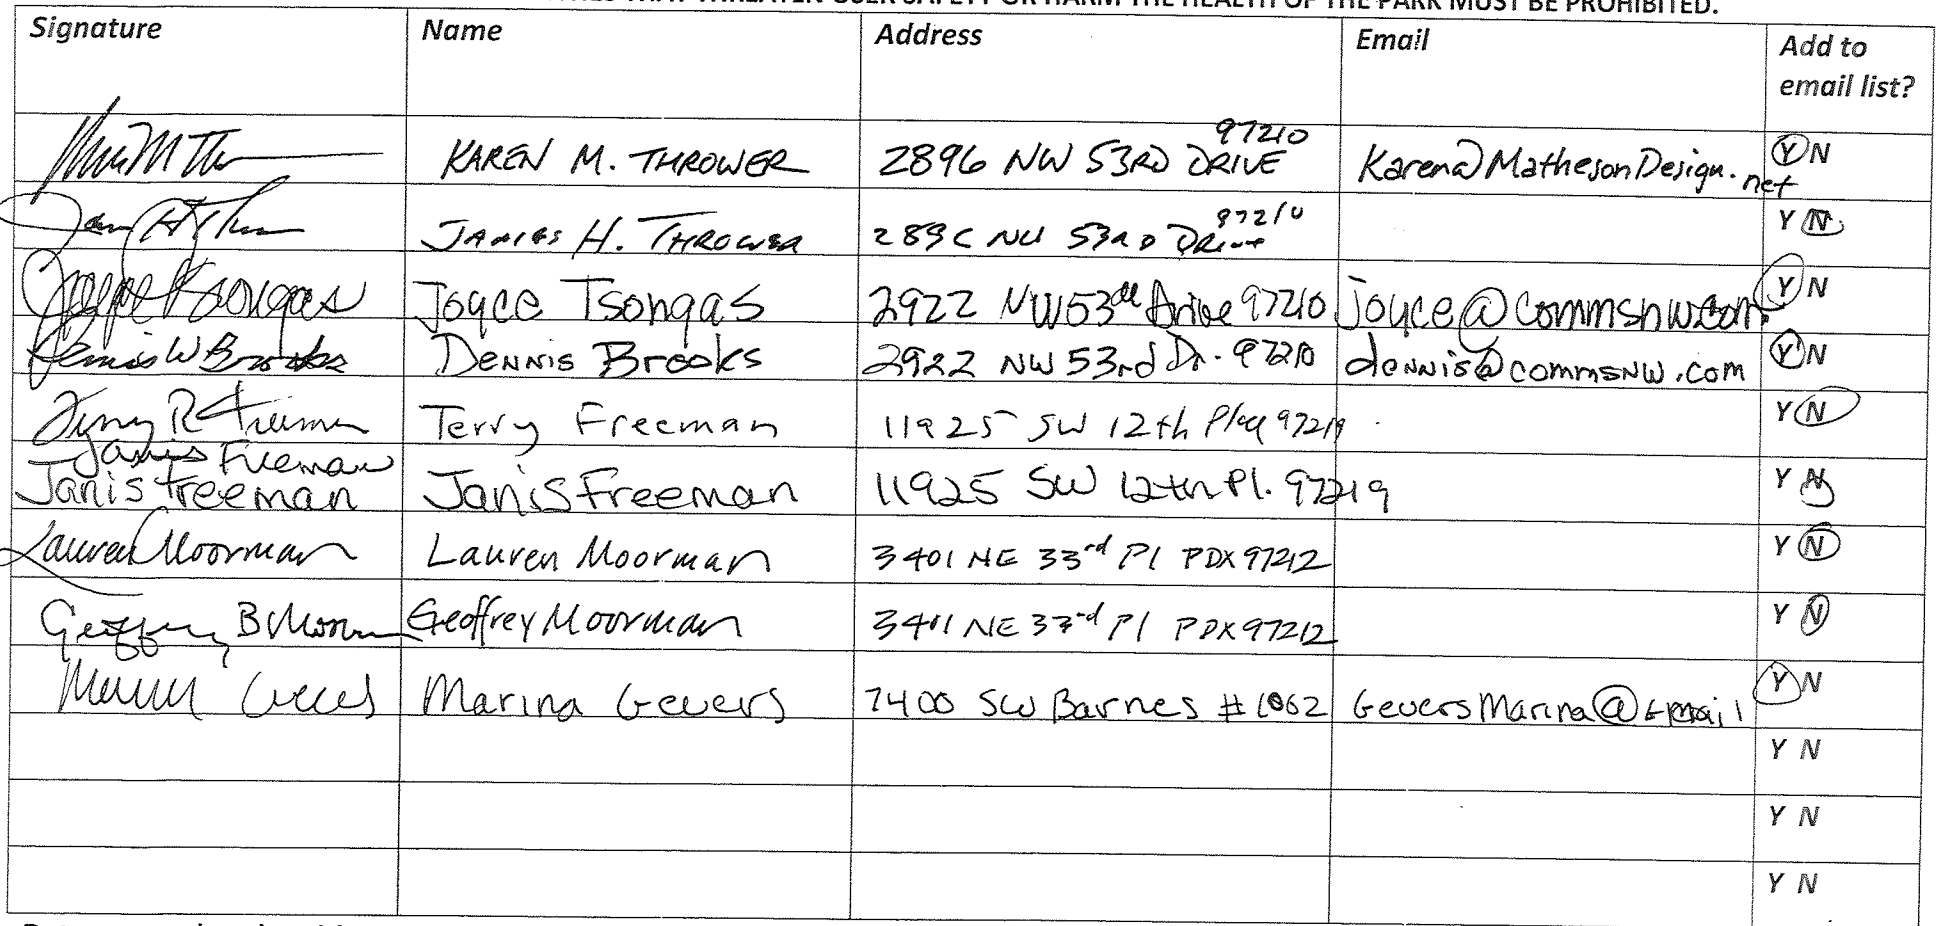 THAT THREATEN USER SAFETY OR HARM THE HEALTH OF THE PARK MUST BE PROHIBITED.
Signature Name Address Email Add to email list?
KAREN M. THROWER 2896 NW 53RD DRIVE 97210 Karen@MathesonDesign.net Y N
JAMES H. THROWER 2896 NW 53RD DRIVE 97210 Y N
Joyce Tsongas Joyce Tsongas 2922 NW 53rd Drive 97210 joyce@commsnw.com Y N
Dennis W Brooks Dennis Brooks 2922 NW 53rd Dr. 97210 dennis@commsNW.com Y N
Terry R Freeman Terry Freeman 11925 SW 12th Place 97219 Y N
Janis Freeman
Janis Freeman Janis Freeman 11925 SW 12th Pl. 97219 Y N
Lauren Moorman Lauren Moorman 3401 NE 33rd Pl PDX 97212 Y N
Geoffrey B Moorman Geoffrey Moorman 3401 NE 33rd Pl PDX 97212 Y N
Marina Gevers Marina Gevers 7400 SW Barnes #1062 GeversMarina@Gmail Y N
Y N
Y N
Y N